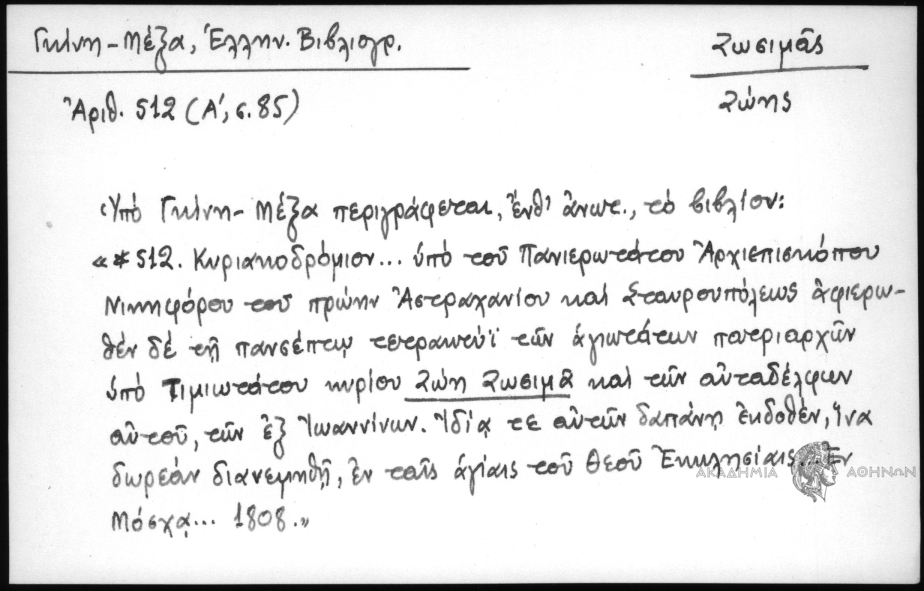 Γκίνη - Μέξα, Ἑλλην. Βιβλιογρ.
Ζωσιμᾶς
Ζώης
Ἀριθ. 512 (Α', σ. 85)
Ὑπό Γκίνη - Μέξα περιγράφεται, ἔνθ' ἀνωτ., τό βιβλίον:
«*512. Κυριακοδρόμιον... ὑπό τοῦ Πανιερωτάτου Ἀρχιεπισκόπου
Νικηφόρου τοῦ πρώην Ἀστραχανίου καί Σταυρουπόλεως ἀφιερω-
θέν δέ τῇ πανσέπτῳ τετρακτύϊ τῶν ἁγιωτάτων πατριαρχῶν
ὑπό Τιμιωτάτου κυρίου Ζώη Ζωσιμᾶ καί τῶν αὐταδέλφων
αὐτοῦ, τῶν ἐξ Ἰωαννίνων. Ἰδίᾳ τε αὐτῶν δαπάνῃ ἐκδοθέν, ἵνα
δωρεάν διανεμηθῇ, ἐν ταῖς ἁγίαις τοῦ Θεοῦ Ἐκκλησίαις... Ἐν
Μόσχᾳ... 1808.»
ΑΚΑΔΗΜΙΑ ΑΘΗΝΩΝ